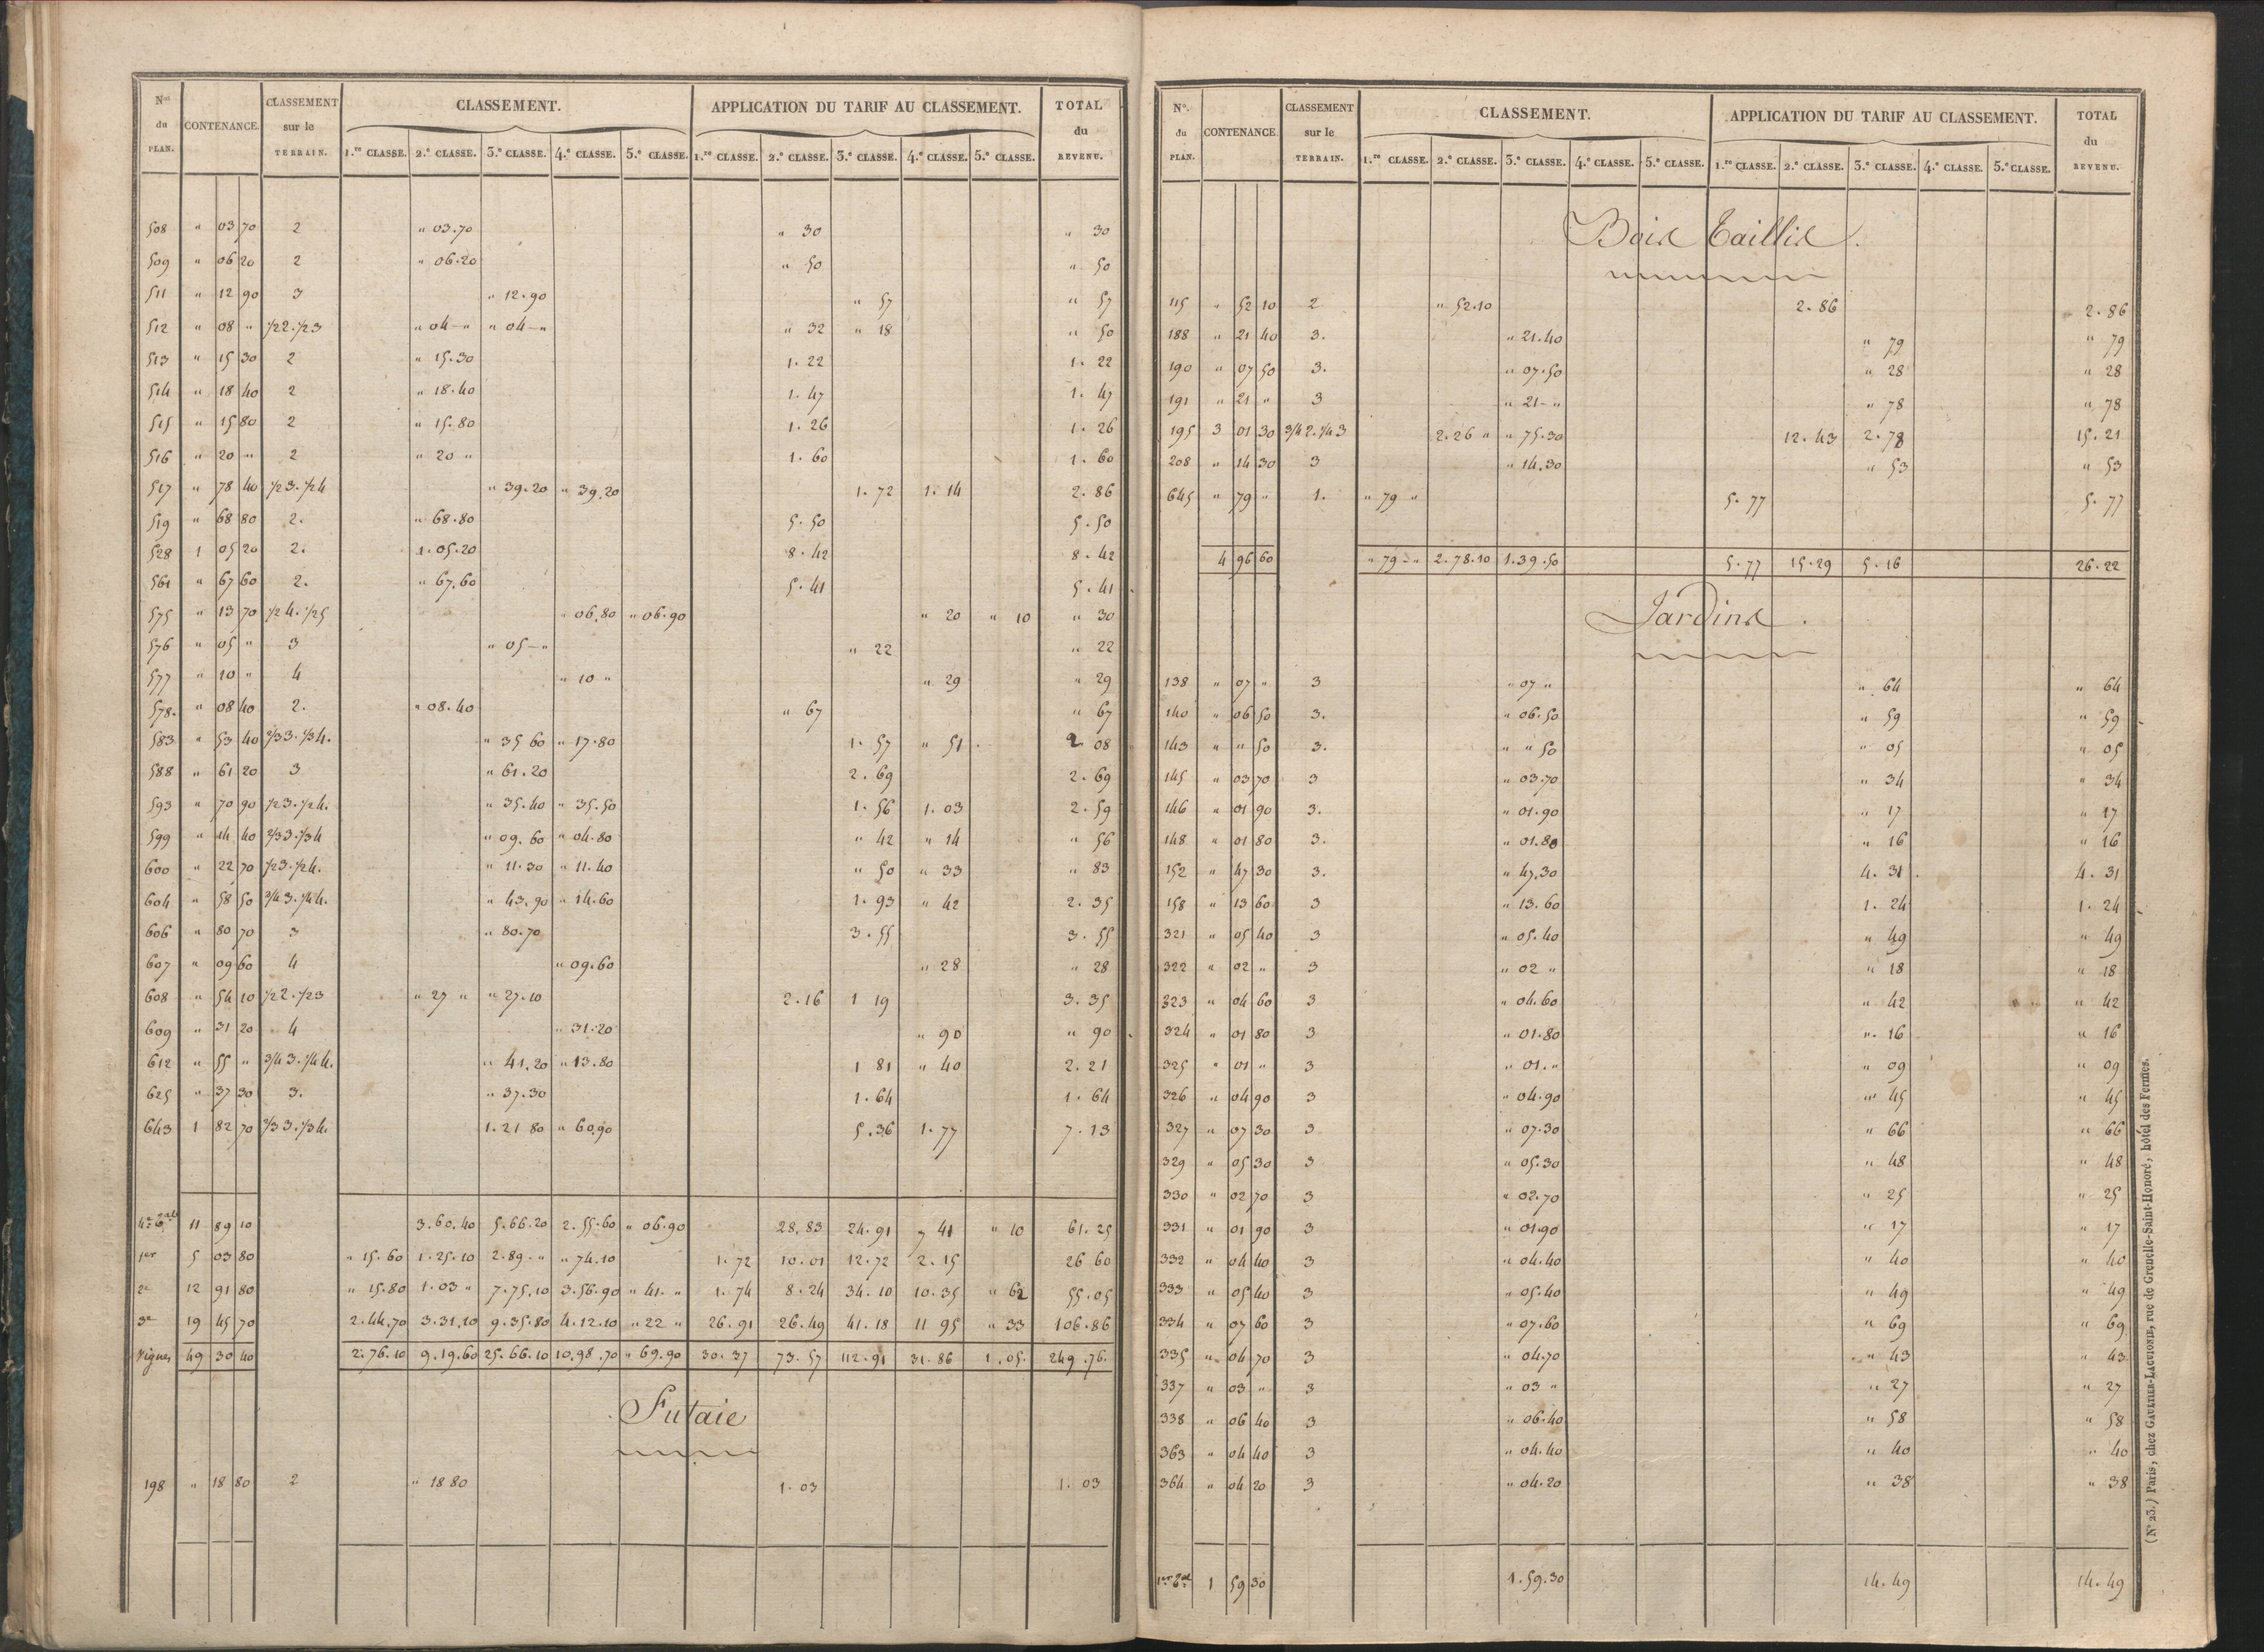 Nos du PLAN. CONTENANCE. CLASSEMENT sur le TERRAIN. CLASSEMENT. APPLICATION DU TARIF AU CLASSEMENT. TOTAL du REVENU.
1.re CLASSE. 2.e CLASSE. 3.e CLASSE. 4.e CLASSE. 5.e CLASSE. 1.re CLASSE. 2.e CLASSE. 3.e CLASSE. 4.e CLASSE. 5.e CLASSE.
508 " 03 70 2 " 03.70 " 30 " 30
509 " 06 20 2 " 06.20 " 50 " 50
511 " 12 90 3 " 12.90 " 57 " 57
512 " 08 " 1/2 2. 1/2 3 " 04 - " " 04 - " " 32 " 18 " 50
513 " 15 30 2 " 15.30 1. 22 1. 22
514 " 18 40 2 " 18.40 1. 47 1. 47
515 " 15 80 2 " 15.80 1. 26 1. 26
516 " 20 " 2 " 20 " 1. 60 1. 60
517 " 78 40 1/2 3. 1/2 4 " 39.20 " 39.20 1. 72 1. 14 2. 86
519 " 68 80 2. " 68.80 5. 50 5. 50
528 1 05 20 2. 1.05.20 8. 42 8. 42
561 " 67 60 2. " 67.60 5. 41 5. 41
575 " 13 70 1/2 4. 1/2 5 " 06.80 " 06.90 " 20 " 10 " 30
576 " 05 " 3 " 05 - " " 22 " 22
577 " 10 " 4 " 10 " " 29 " 29
578. " 08 40 2. " 08.40 " 67 " 67
583 " 53 40 2/3 3. 1/3 4. " 35 60 " 17.80 1. 57 " 51 2 08
588 " 61 20 3 " 61.20 2. 69 2. 69
593 " 70 90 1/2 3. 1/2 4. " 35.40 " 35.50 1. 56 1. 03 2. 59
599 " 14 40 2/3 3. 1/3 4 " 09.60 " 04.80 " 42 " 14 " 56
600 " 22 70 1/2 3. 1/2 4. " 11.30 " 11.40 " 50 " 33 " 83
604 " 58 50 3/4 3. 1/4 4. " 43.90 " 14.60 1. 93 " 42 2. 35
606 " 80 70 3 " 80.70 3. 55 3. 55
607 " 09 60 4 " 09.60 " 28 " 28
608 " 54 10 1/2 2. 1/2 3 " 27 " " 27.10 2. 16 1 19 3. 35
609 " 31 20 4 " 31.20 " 90 " 90
612 " 55 " 3/4 3. 1/4 4. " 41.20 " 13.80 1 81 " 40 2. 21
625 " 37 30 3. " 37.30 1. 64 1. 64
643 1 82 70 2/3 3. 1/3 4. 1.21 80 " 60.90 5. 36 1. 77 7. 13
11 89 10 3.60.40 5.66.20 2.55.60 " 06.90 28. 83 24. 91 7 41 " 10 61. 25
1er 5 03 80 " 15.60 1.25.10 2.89. " " 74.10 1. 72 10. 01 12. 72 2. 15 26 60
2e 12 91 80 " 15.80 1.03 " 7.75.10 3.56.90 " 41. " 1. 74 8. 24 34. 10 10. 35 " 62 55. 05
3e 19 45 70 2.44.70 3.31.10 9.35.80 4.12.10 " 22 " 26. 91 26. 49 41. 18 11 95 " 33 106. 86
Vignes 49 30 40 2.76.10 9.19.60 25.66.10 10.98.70 " 69.90 30. 37 73. 57 112. 91 31. 86 1. 05. 249. 76.
Futaie
198 " 18 80 2 " 18 80 1. 03 1. 03
No. du PLAN. CONTENANCE. CLASSEMENT sur le TERRAIN. CLASSEMENT. APPLICATION DU TARIF AU CLASSEMENT. TOTAL du REVENU.
1.re CLASSE. 2.e CLASSE. 3.e CLASSE. 4.e CLASSE. 5.e CLASSE. 1.re CLASSE. 2.e CLASSE. 3.e CLASSE. 4.e CLASSE. 5.e CLASSE.
Bois Taillis.
115 " 52 10 2 " 52.10 2. 86 2. 86
188 " 21 40 3. " 21.40 " 79 " 79
190 " 07 50 3. " 07.50 " 28 " 28
191 " 21 " 3 " 21 - " " 78 " 78
195 3 01 30 3/4 2. 1/4 3 2.26 " " 75.30 12. 43 2. 78 15. 21
208 " 14 30 3 " 14.30 " 53 " 53
645 " 79 " 1. " 79 " 5. 77 5. 77
4 96 60 " 79 - " 2.78.10 1.39.50 5. 77 15. 29 5. 16 26. 22
Jardins.
138 " 07 " 3 " 07 " " 64 " 64
140 " 06 50 3. " 06.50 " 59 " 59
143 " " 50 3. " " 50 " 05 " 05
145 " 03 70 3 " 03.70 " 34 " 34
146 " 01 90 3. " 01.90 " 17 " 17
148 " 01 80 3. " 01.80 " 16 " 16
152 " 47 30 3. " 47.30 4. 31 4. 31
158 " 13 60 3 " 13.60 1. 24 1. 24
321 " 05 40 3 " 05.40 " 49 " 49
322 " 02 " 3 " 02 " " 18 " 18
323 " 04 60 3 " 04.60 " 42 " 42
324 " 01 80 3 " 01.80 " 16 " 16
325 " 01 " 3 " 01. " " 09 " 09
326 " 04 90 3 " 04.90 " 45 " 45
327 " 07 30 3 " 07.30 " 66 " 66
329 " 05 30 3 " 05.30 " 48 " 48
330 " 02 70 3 " 02.70 " 25 " 25
331 " 01 90 3 " 01.90 " 17 " 17
332 " 04 40 3 " 04.40 " 40 " 40
333 " 05 40 3 " 05.40 " 49 " 49
334 " 07 60 3 " 07.60 " 69 " 69
335 " 04 70 3 " 04.70 " 43 " 43
337 " 03 " 3 " 03 " " 27 " 27
338 " 06 40 3 " 06.40 " 58 " 58
363 " 04 40 3 " 04.40 " 40 " 40
364 " 04 20 3 " 04.20 " 38 " 38
1 59 30 1.59.30 14. 49 14. 49
(No 23.) Paris, chez GAULTIER-LAGUIONIE, rue de Grenelle-Saint-Honoré, hôtel des Fermes.